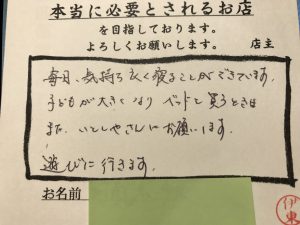 本当に必要とされるお店
を目指しております。
よろしくお願いします。 店主
毎日、気持ち良く寝ることができています。
子どもが大きくなり ベッドを買うときは
また いとしやさんにお願いします。
遊びに行きます。
お名前
伊東